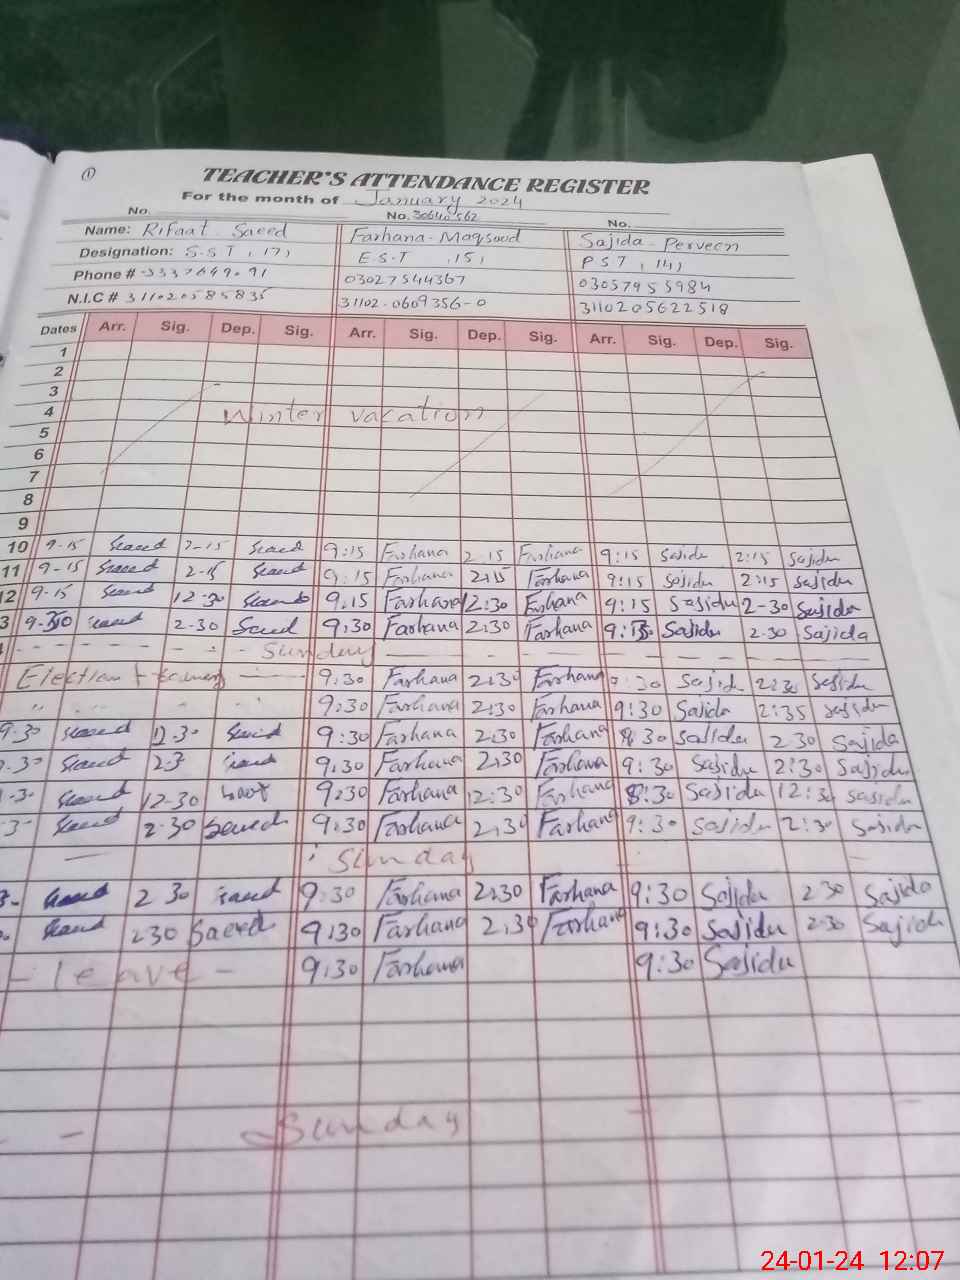 1
TEACHER'S ATTENDANCE REGISTER
For the month of January 2024
No. No. 30640562 No.
Name: Rifaat Saeed Farhana Maqsood Sajida Perveen
Designation: S.S.T, 17, E.S.T, 15, P S T, 14,
Phone # 03027544367 03057955984
N.I.C # 311020585835 31102-0609356-0 3110205622518
Dates Arr. Sig. Dep. Sig. Arr. Sig. Dep. Sig. Arr. Sig. Dep. Sig.
1
2
3
4 Winter vacation
5
6
7
8
9
10 9-15 Saeed 2-15 Saeed 9:15 Farhana 2:15 Farhana 9:15 Sajida 2:15 Sajida
11 9-15 Saeed 2-15 Saeed 9:15 Farhana 2:15 Farhana 9:15 Sajida 2:15 Sajida
12 9-15 Saeed 12-30 Saeed 9:15 Farhana 12:30 Farhana 9:15 Sajida 2-30 Sajida
3 Saeed 2-30 Saeed 9:30 Farhana 2:30 Farhana Sajida 2-30 Sajida
Sunday
Election 9:30 Farhana 2:30 Farhana Sajida 2:30 Sajida
" 9:30 Farhana 2:30 Farhana 9:30 Sajida 2:35 Sajida
9-30 Saeed 2-30 Saeed 9:30 Farhana 2:30 Farhana 8:30 Sajida 2 30 Sajida
Saeed Saeed 9:30 Farhana 2:30 Farhana 9:30 Sajida 2:30 Sajida
Saeed 12-30 9:30 Farhana 12:30 Farhana 8:30 Sajida 12:30 Sajida
Saeed 2-30 Saeed 9:30 Farhana 2:30 Farhana 9:30 Sajida 2:30 Sajida
Sunday
Saeed 2 30 Saeed 9:30 Farhana 2:30 Farhana 9:30 Sajida 2 30 Sajida
Saeed 230 Saeed 9:30 Farhana 2:30 Farhana 9:30 Sajida 2-30 Sajida
- leave - 9:30 Farhana 9:30 Sajida
Sunday
24-01-24 12:07